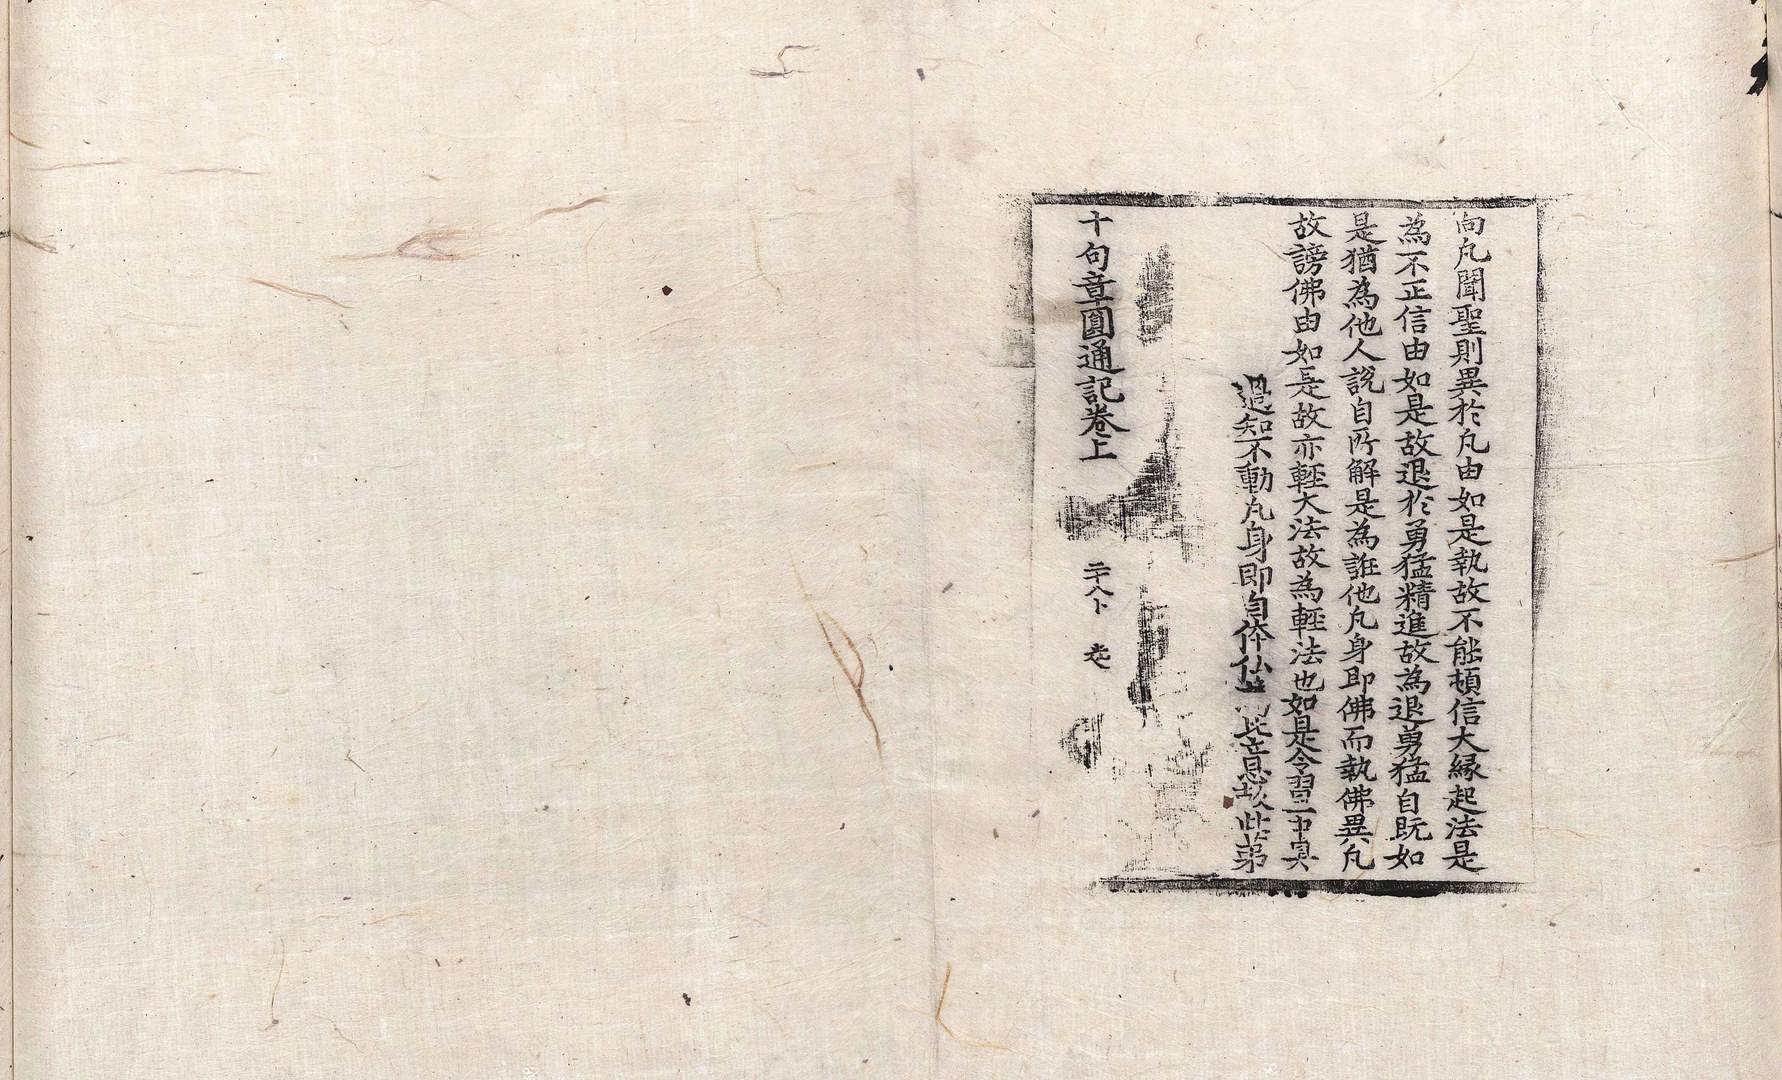 向凡聞聖則異於凡由如是執故不能頓信大緣起法是
為不正信由如是故退於勇猛精進故為退勇猛自既如
是猶為他人說自所解是為誑他凡身即佛而執佛異凡
故謗佛由如是故亦輕大法故為輕法也如是令習
過知不動凡身即自体仏 此第
十句章圓通記卷上
二十八卜